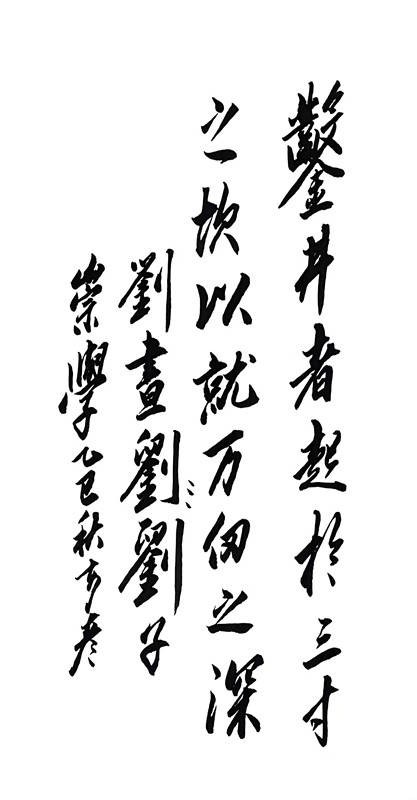 鑿井者起於三寸
之坎以就万仞之深
劉晝劉劉子
崇學乙巳秋彦